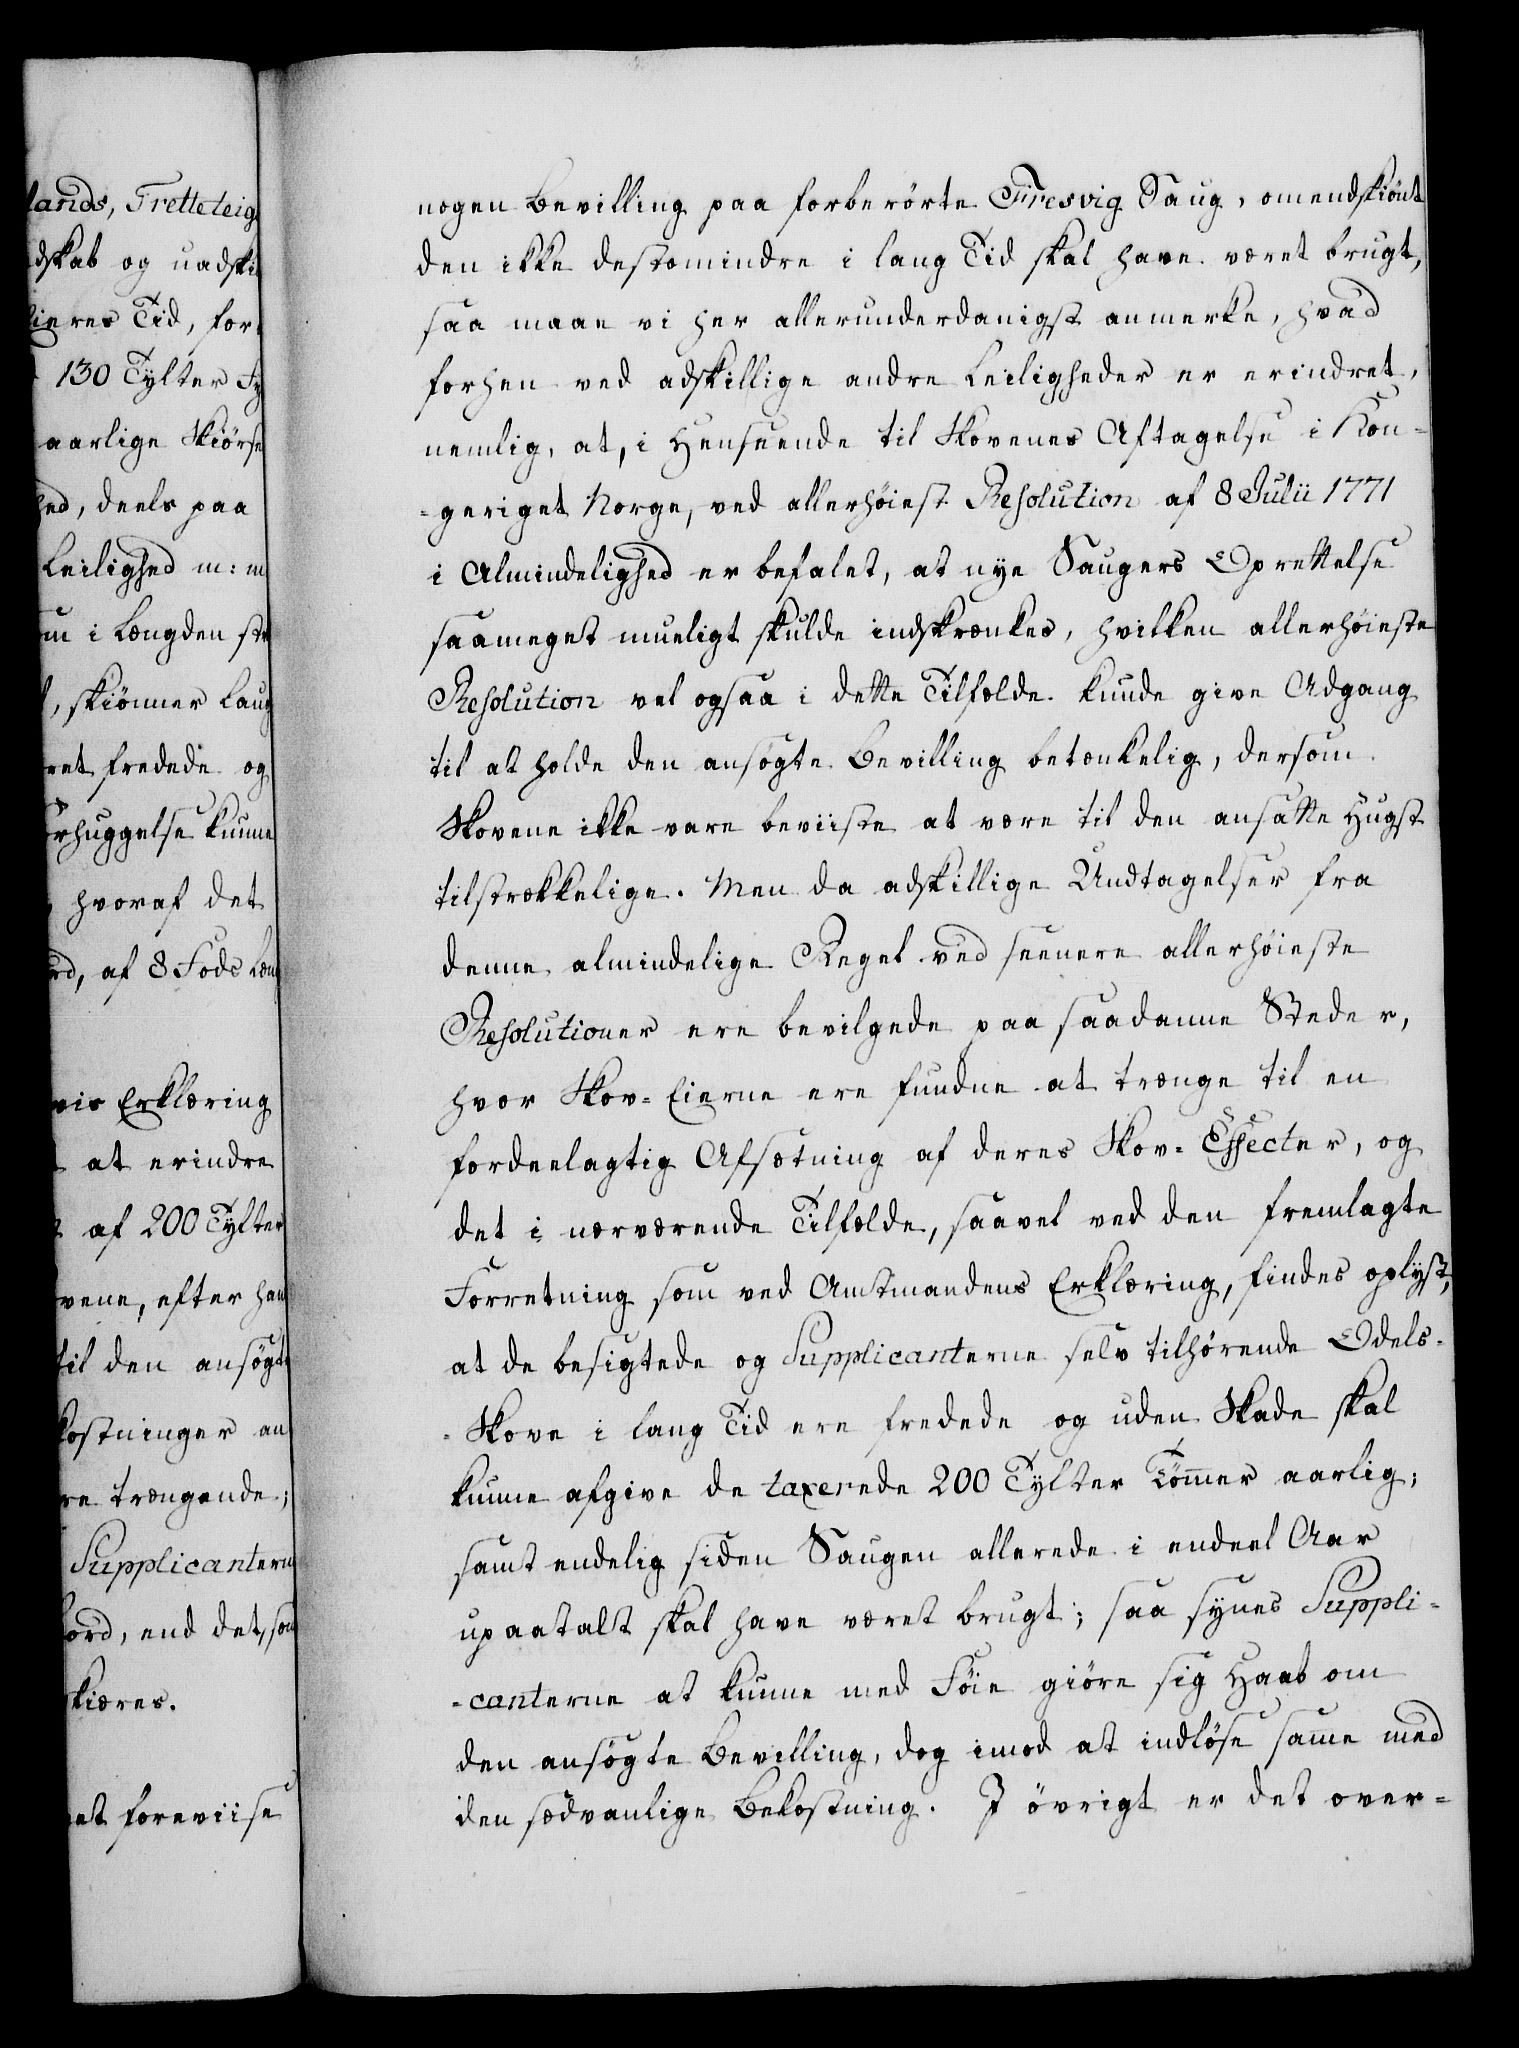 lands, Tretteteig
dskab og uadski
Eieres Tid, for
130 Tylter Fy
aarlige Skiörse
hed, deels paa
Leilighed m: m
om i Længden str
, skiönner Laug
ret fredede og
orhuggelse kunne
hvoraf det
rd, af 8 Fods Læng
vis Erklæring
at erindre
af 200 Tylter
vene, efter han
til den ansøgte
kostninger an
re trængende;
Supplicantern
bord, end det, som
skiæres.
et foreviise
nogen Bevilling paa forberörte Firesvig Saug, omendskiönt
den ikke destomindre i lang Tid skal have været brugt,
saa maae vi her allerunderdanigst anmerke, hvad
forhen ved adskillige andre Leiligheder er erindret,
nemlig, at, i Henseende til Skovenes Aftagelse i Kon-
-geriget Norge, ved allerhöiest Resolution af 8 Julii 1771
i Almindelighed er befalet, at nye Saugers Oprettelse
saameget mueligt skulde indskrænkes, hvilken allerhöieste
Resolution vel ogsaa i dette Tilfælde kunde give Adgang
til at holde den ansøgte Bevilling betænkelig, dersom
Skovene ikke vare beviiste at være til den ansatte Hugst
tilstrækkelige. Men da adskillige Undtagelser fra
denne almindelige Regel ved seenere allerhöieste
Resolutioner ere bevilgede paa saadanne Steder,
hvor Skov-Eierne ere fundne at trænge til en
fordeelagtig Afsætning af deres Skov-Effecter, og
det i nærværende Tilfælde, saavel ved den fremlagte
Forretning som ved Amtmandens Erklæring, findes oplyst,
at de besigtede og Supplicanterne selv tilhørende Odels-
-Skove i lang Tid ere fredede og uden Skade skal
kunne afgive de taxerede 200 Tylter Tömmer aarlig;
samt endelig siden Saugen allerede i endeel Aar
upaatalt skal have været brugt; saa synes Suppli-
-canterne at kunne med Föie giöre sig Haab om
den ansøgte Bevilling, dog imod at indlöse samme med
den sædvanlige Bekostning. I övrigt er det over-